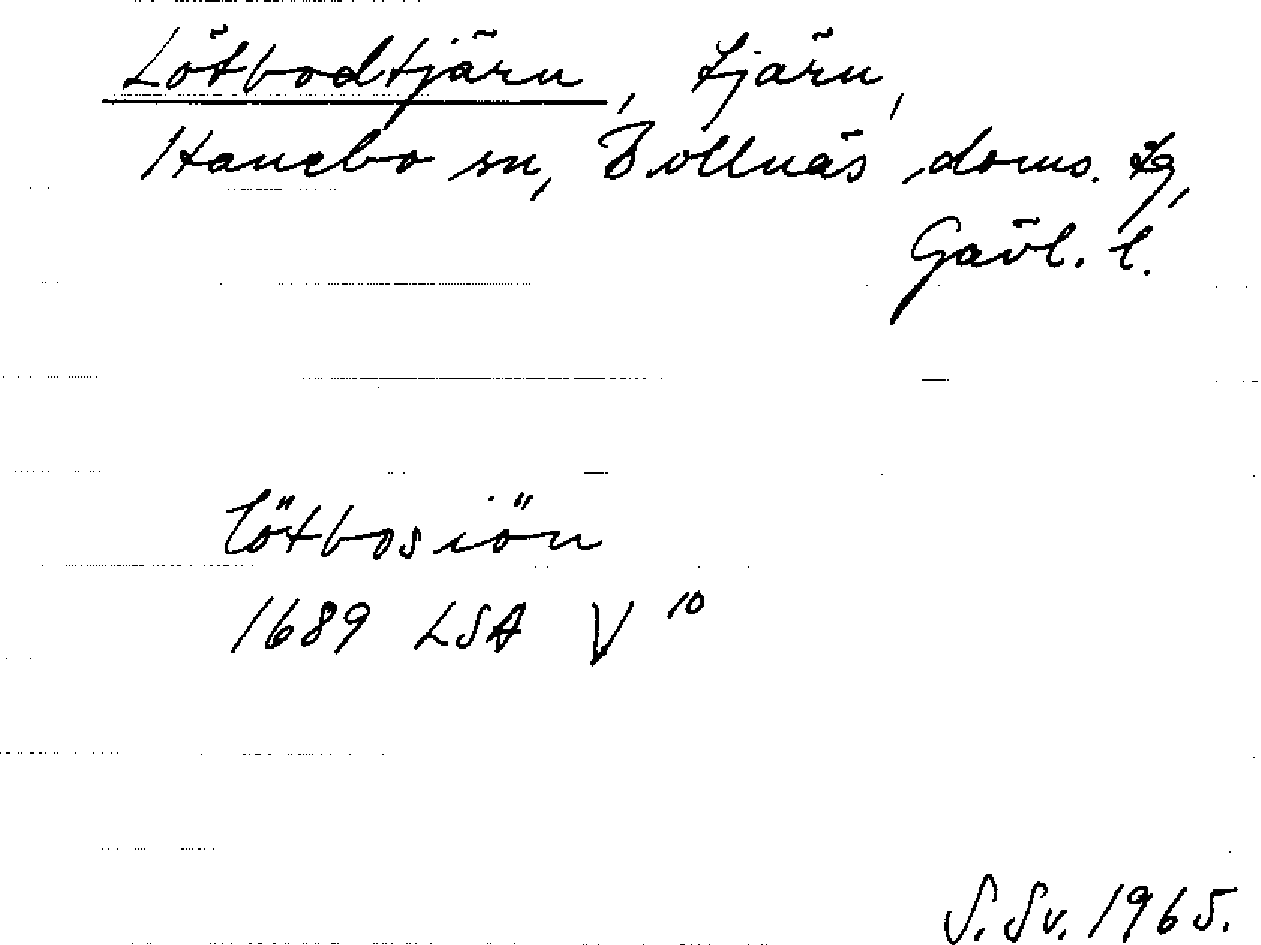 Lötbodtjärn, tjärn,
Hanebo sn, Bollnäs doms. tg,
Gävl. l.
lötbosiön
1689 LSA V 10
S. Sv. 1965.